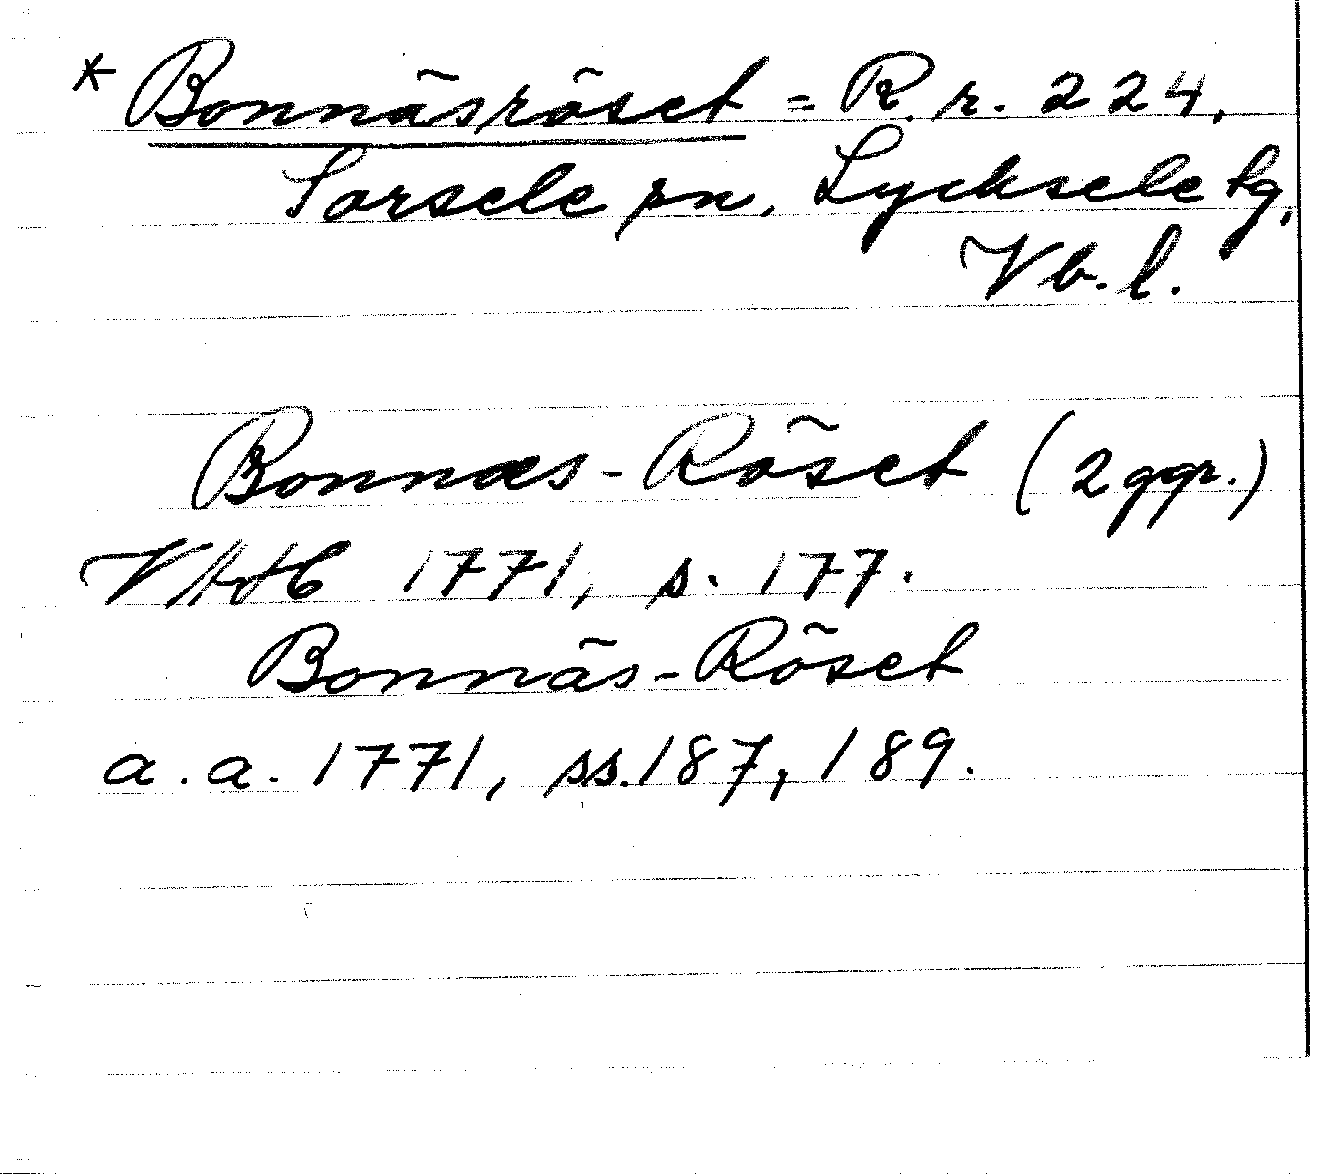 * Bonnäsröset = R. r. 224,
Sorsele sn, Lycksele tg,
Vb. l.
Bonnæs-Röset (2 ggr.)
VHAH 1771, s. 177.
Bonnäs-Röset
a. a. 1771, ss. 187, 189.